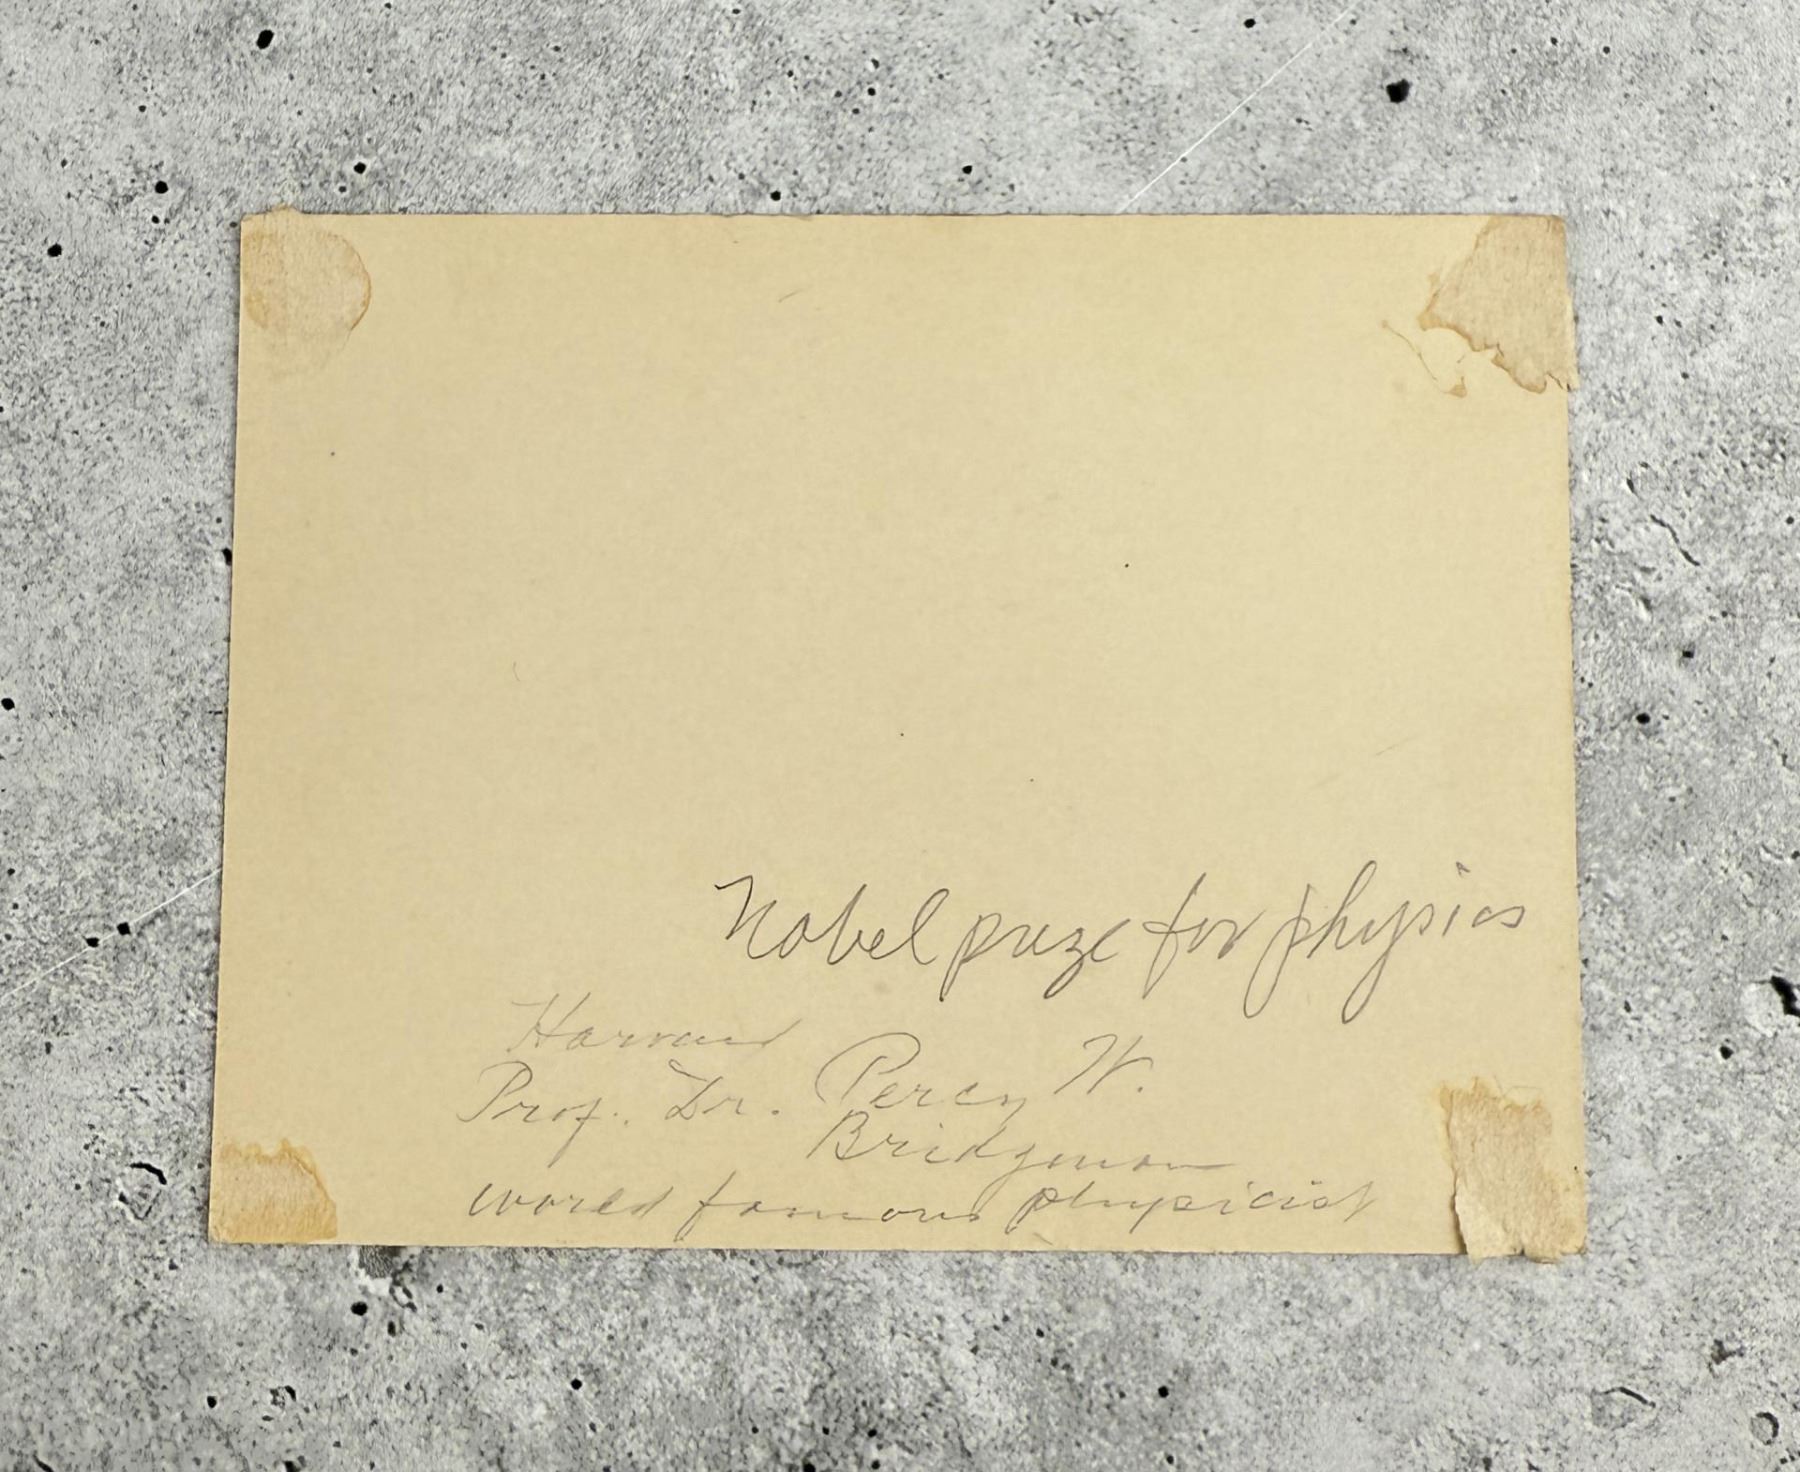 Nobel prize for physics
Harvard
Prof. Dr. Percy W.
Bridgman
world famous physicist